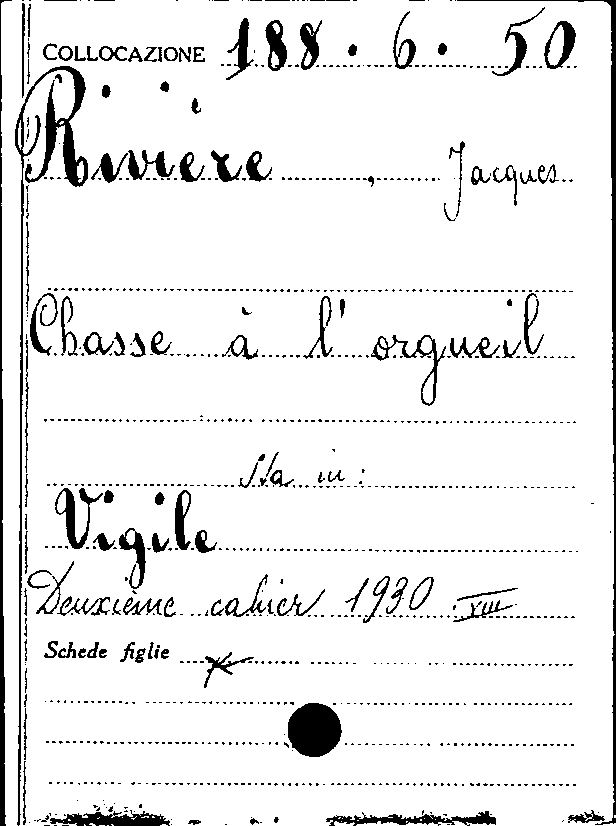 COLLOCAZIONE 188.6.50
Rivière, Jacques
Chasse à l'orgueil
Sta in:
Vigile
Deuxième cahier 1930. XIII
Schede figlie